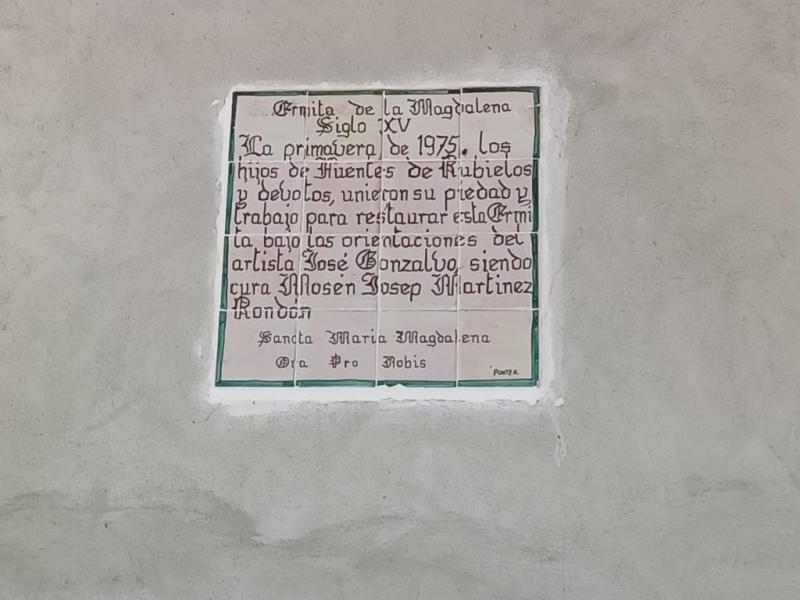 Ermita de la Magdalena
Siglo XV
La primavera de 1975. los
hijos de Fuentes de Rubielos
y devotos, unieron su piedad y
trabajo para restaurar esta Ermi
ta bajo las orientaciones del
artista José Gonzalvo, siendo
cura Mosén Josep Martinez
Rondon
Sancta Maria Magdalena
Ora Pro Nobis
PUNTER